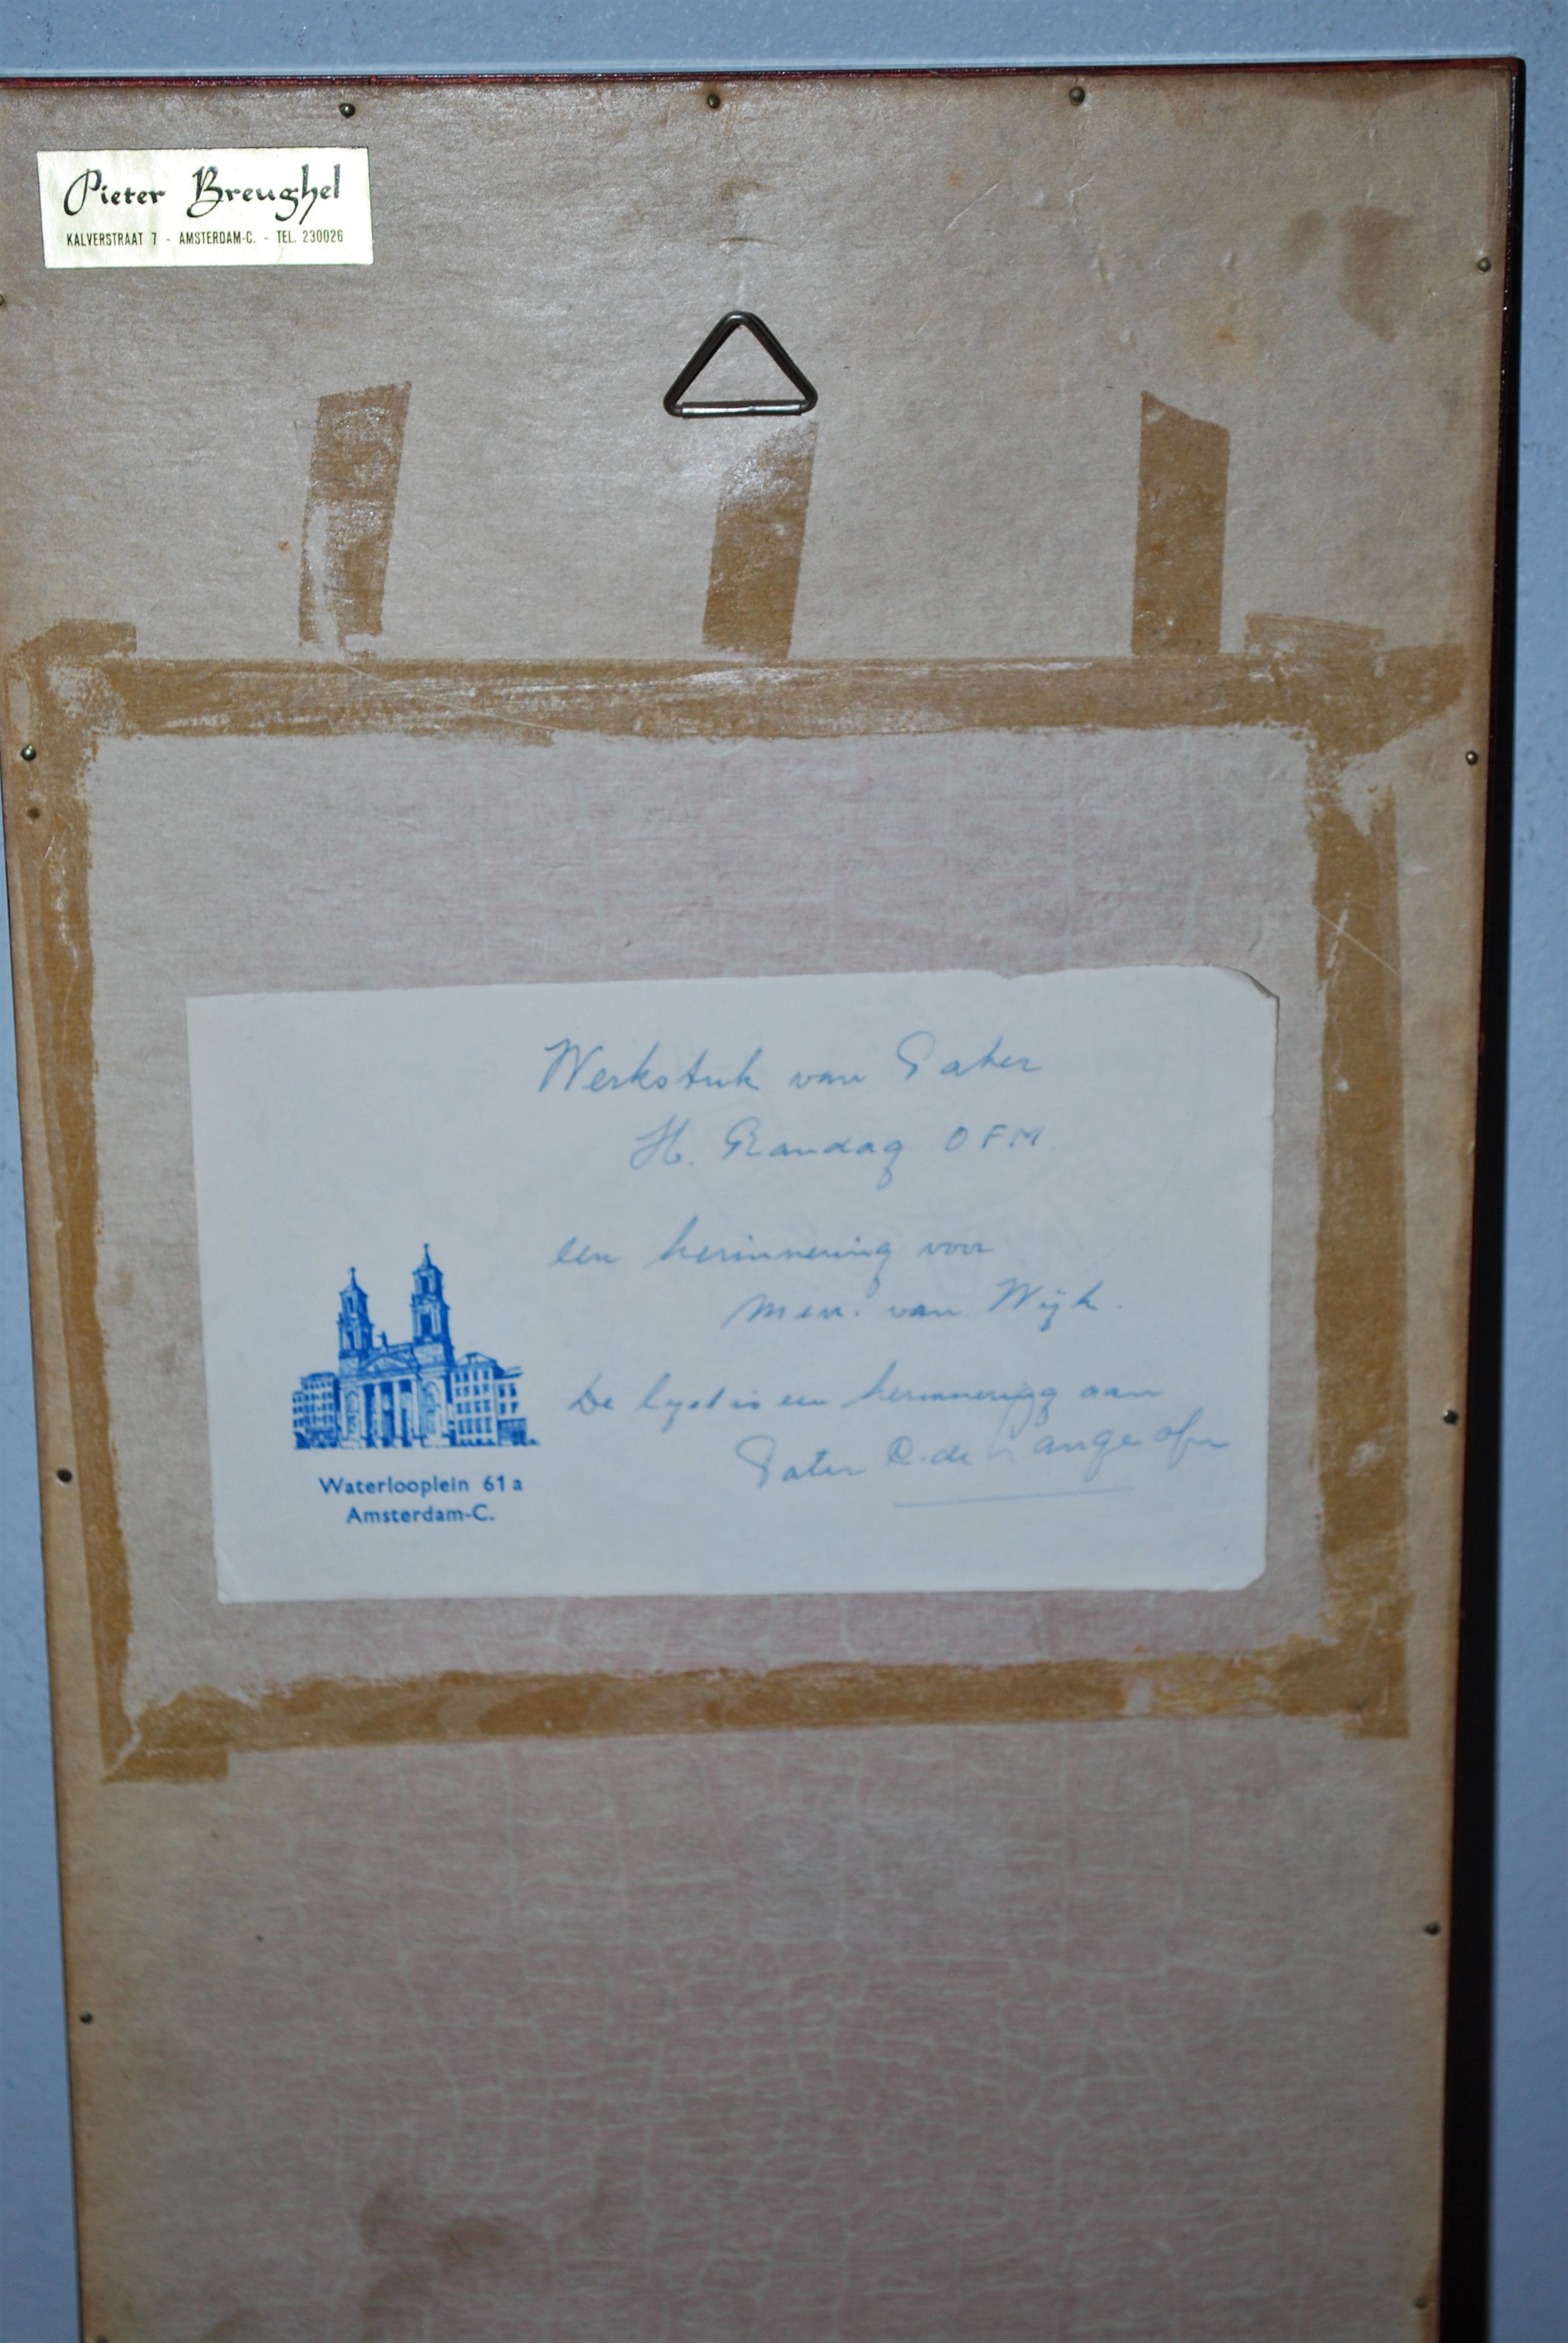 Pieter Breughel
KALVERSTRAAT 7 - AMSTERDAM-C. - TEL. 230026
Werkstuk van Pater
H. Randag OFM.
een herinnering voor
van Wijk.
De lyst is een herinnering aan
Pater C. de Lange ofm
Waterlooplein 61a
Amsterdam-C.